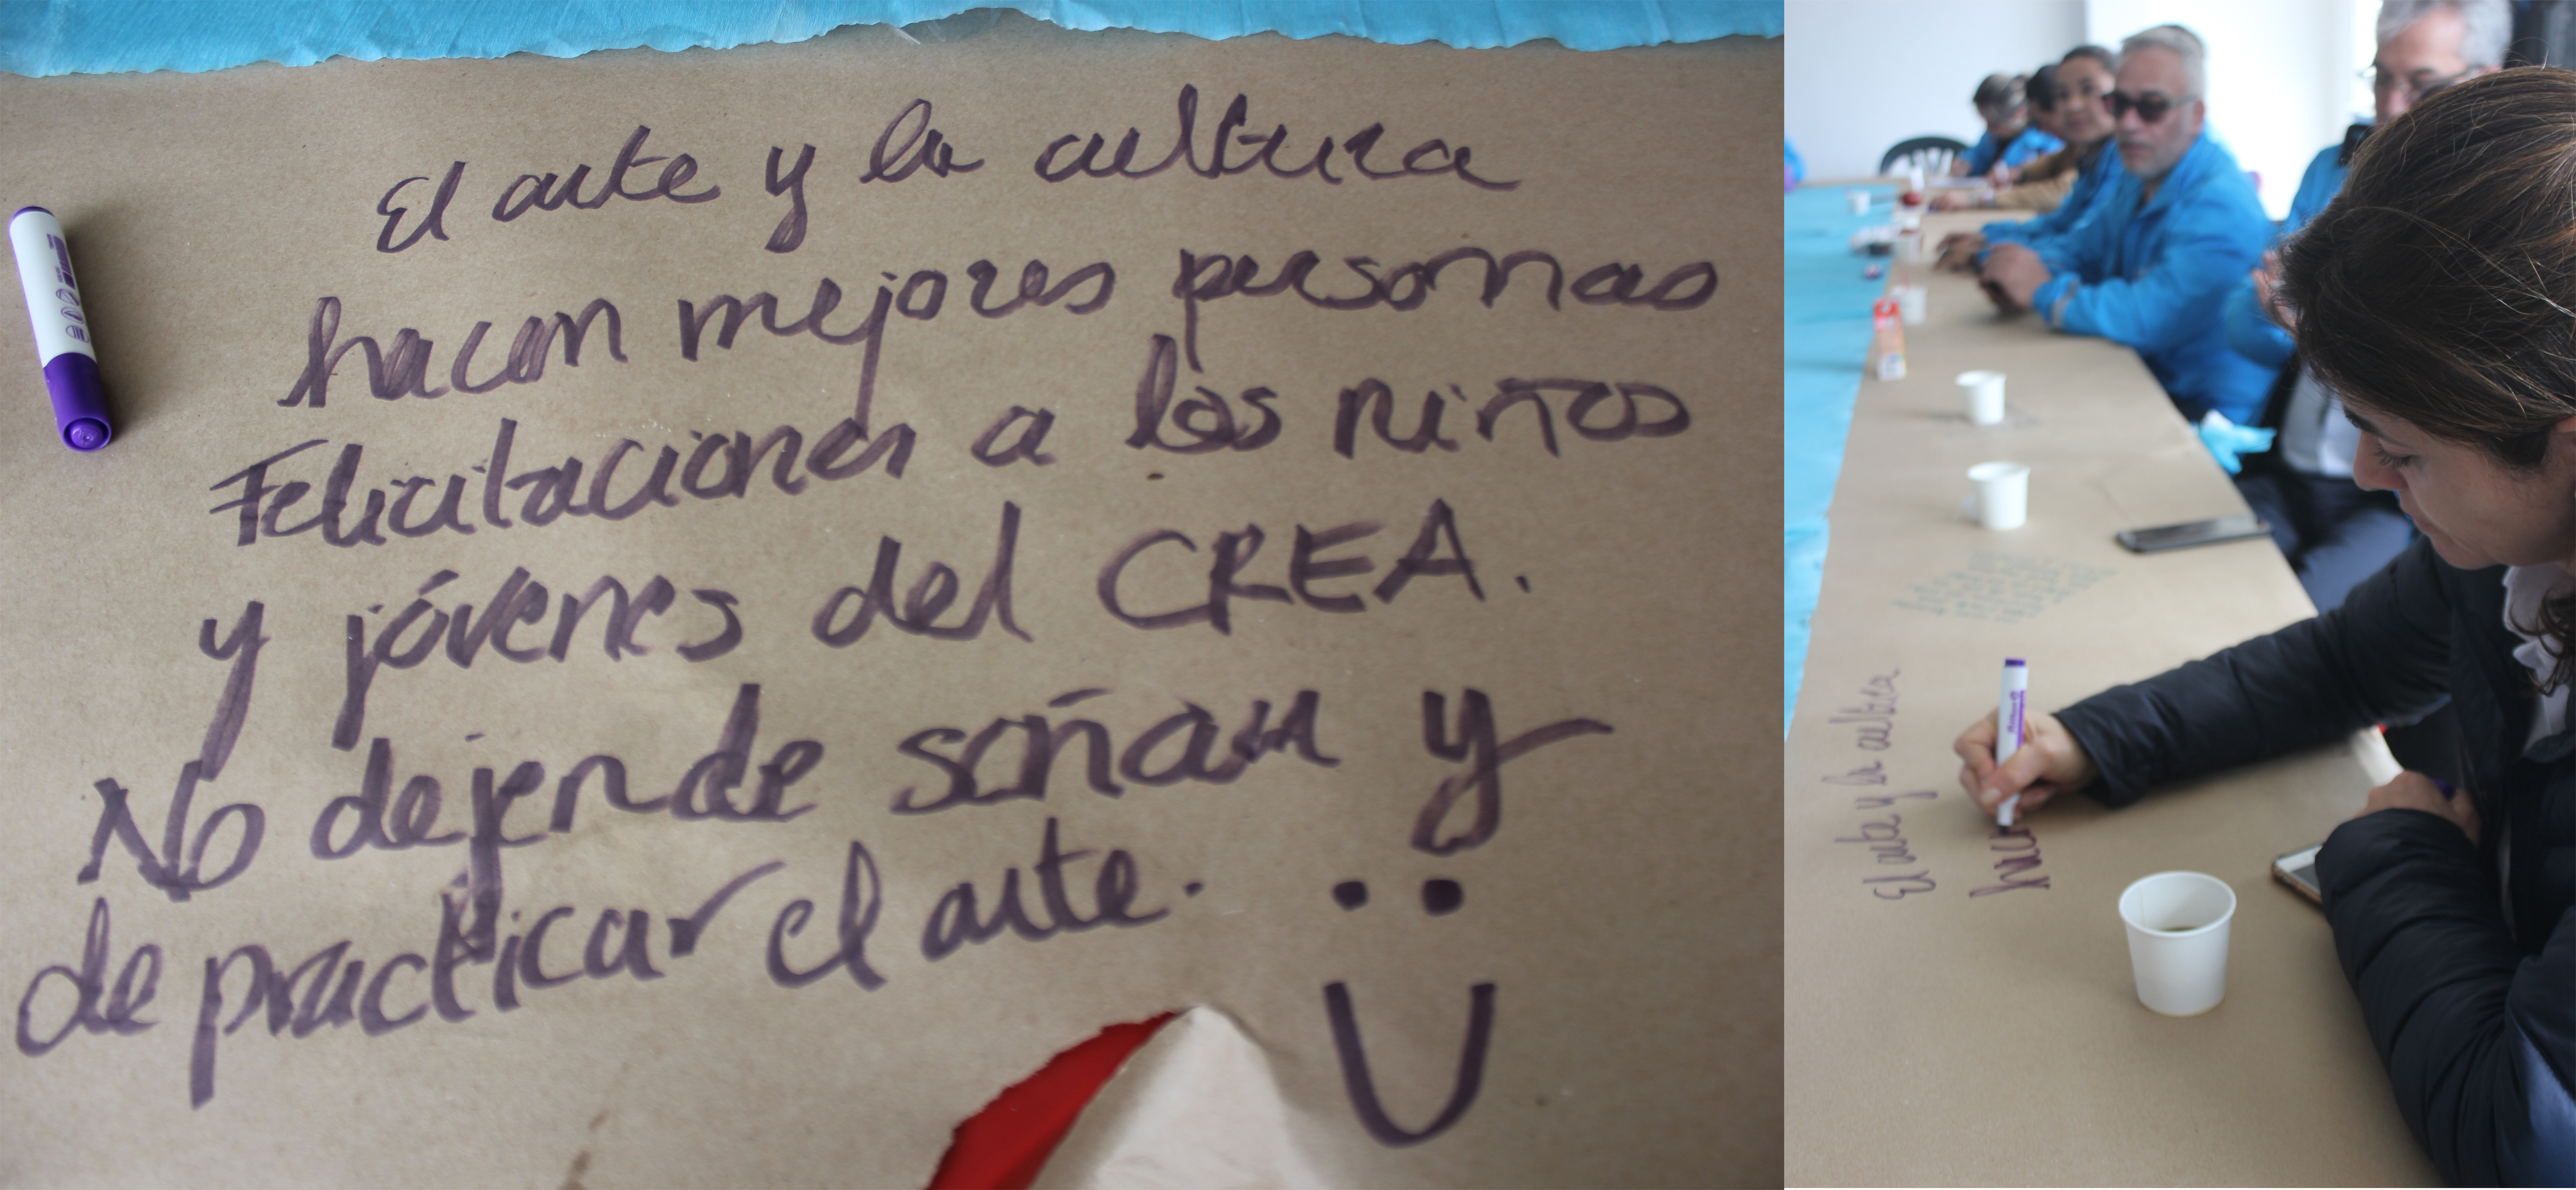 El arte y la cultura
hacen mejores personas
Felicitaciones a los niños
y jóvenes del CREA.
No dejen de soñar y
de practicar el arte.
El arte y la cultura
hac